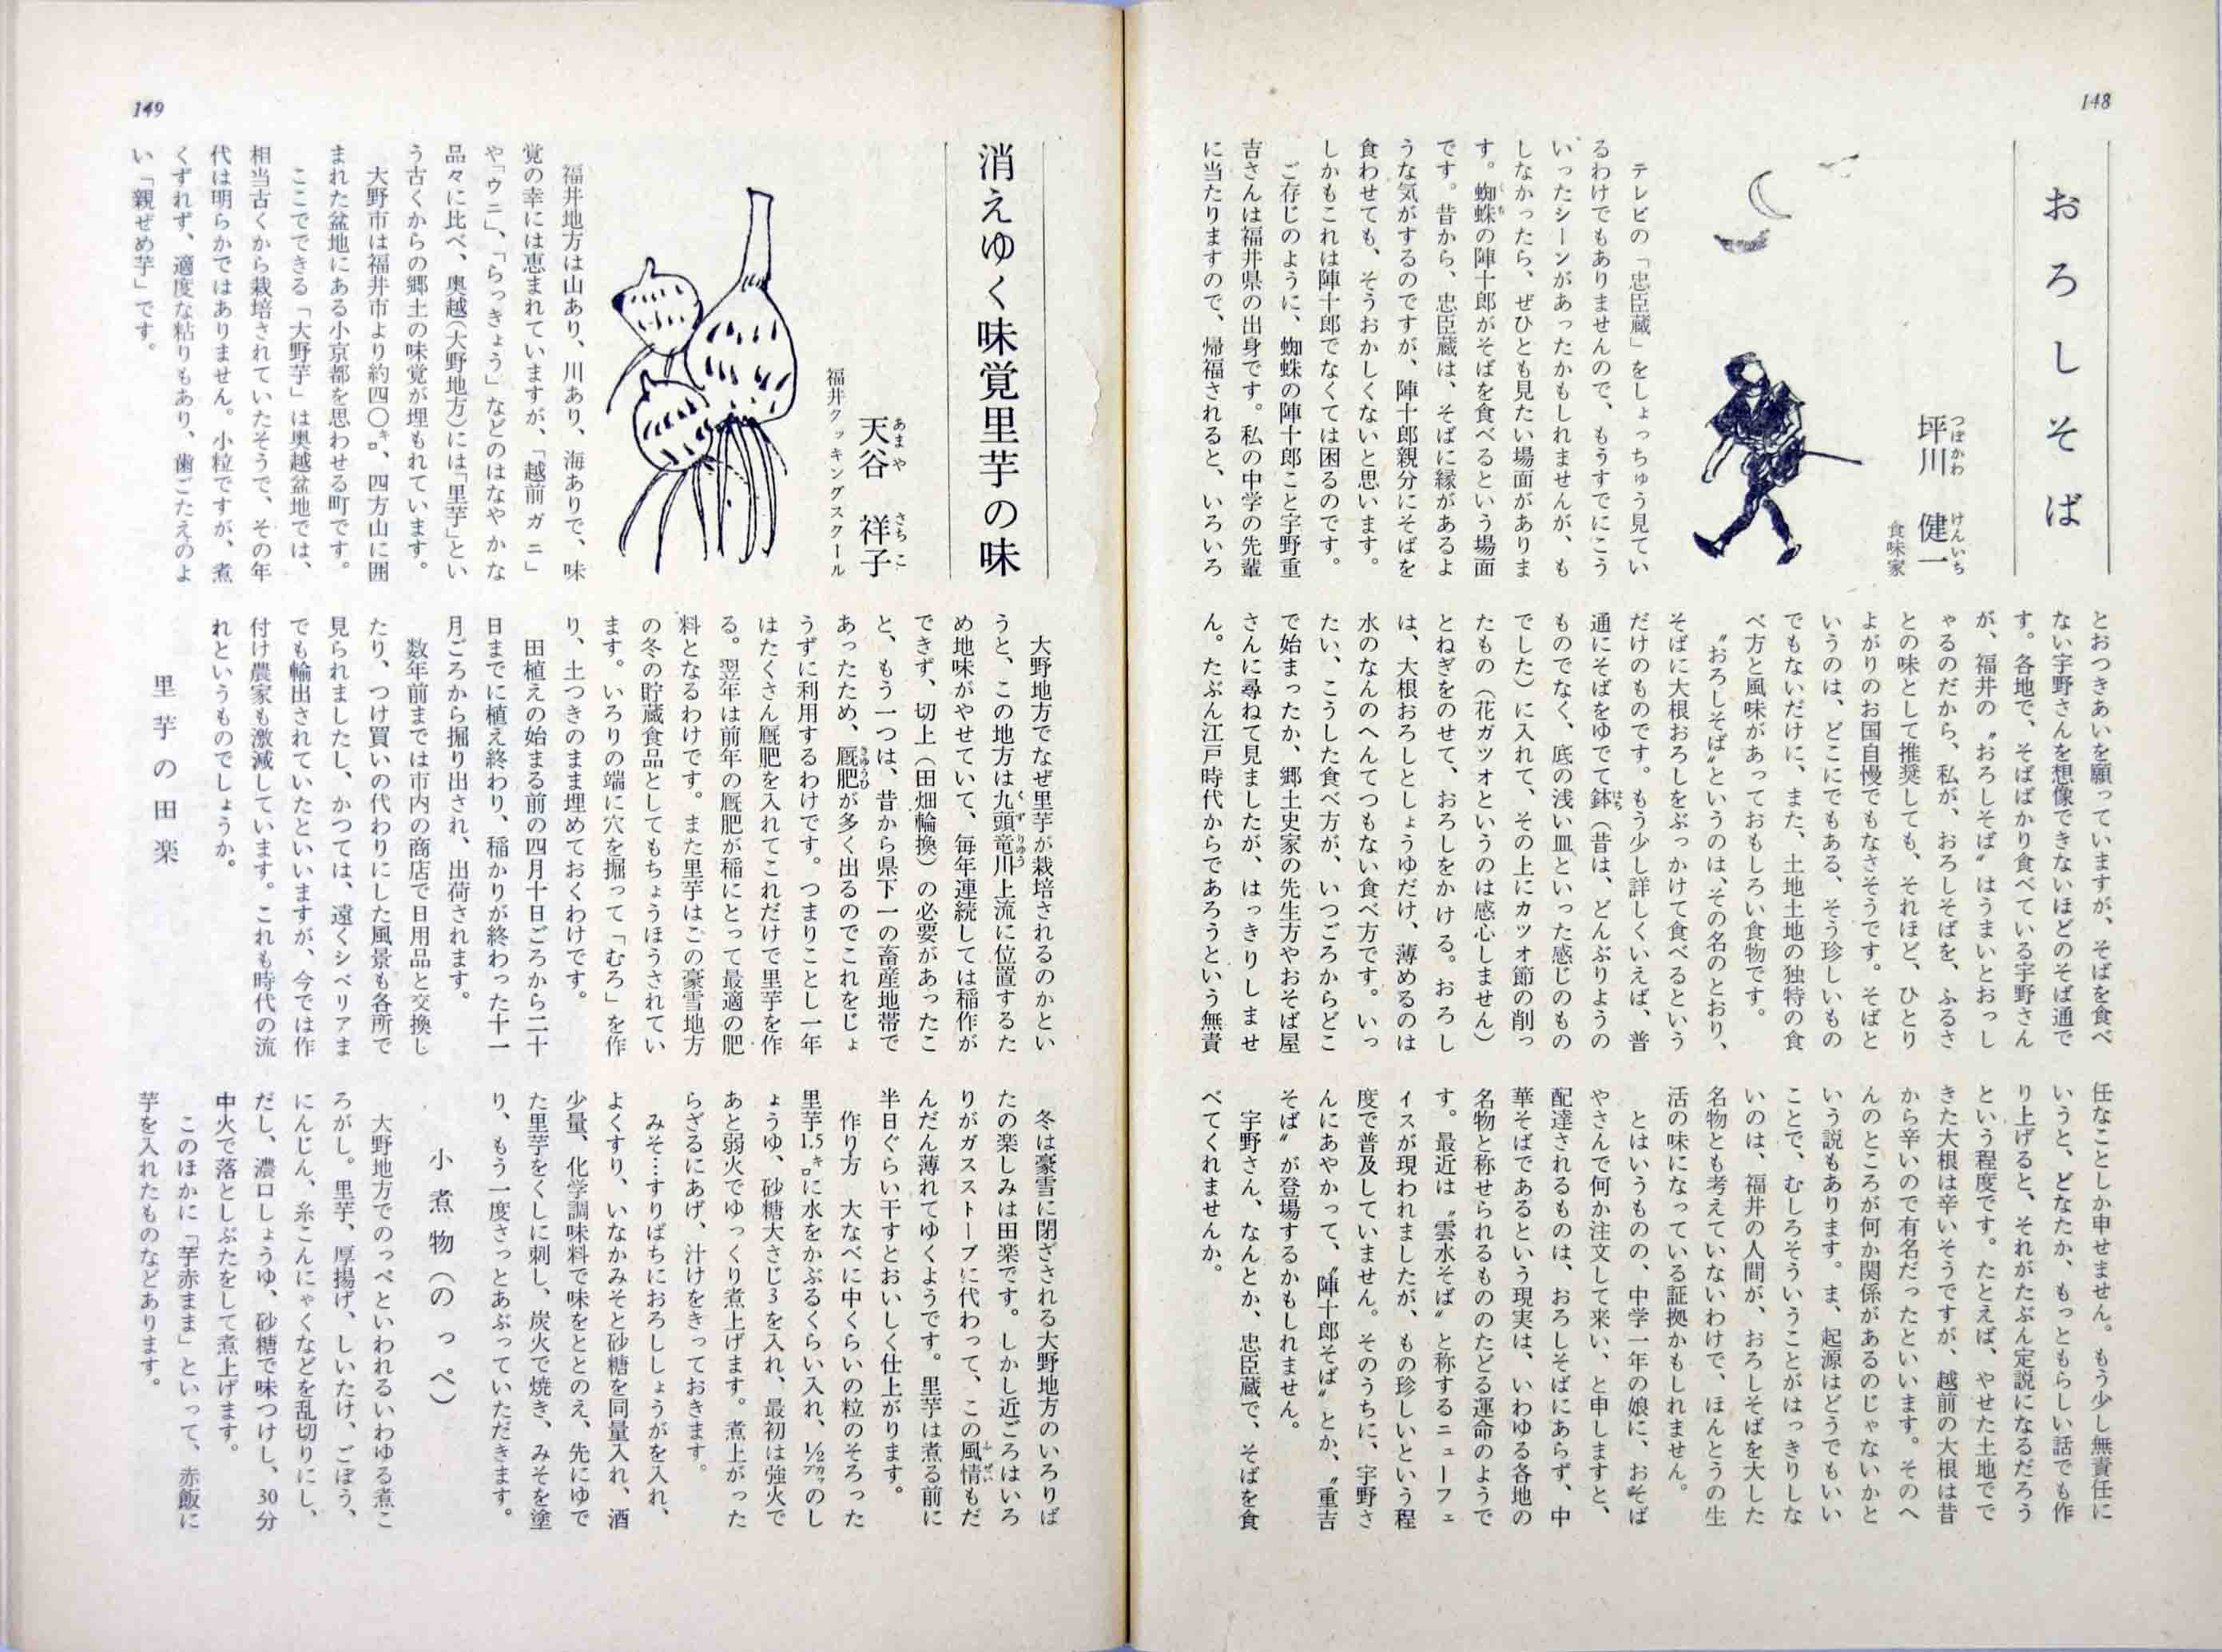 148
おろしそば
坪川 健一
つぼかわ けんいち
食味家
テレビの「忠臣蔵」をしょっちゅう見てい
るわけでもありませんので、もうすでにこう
いったシーンがあったかもしれませんが、も
しなかったら、ぜひとも見たい場面がありま
す。蜘蛛の陣十郎がそばを食べるという場面
です。昔から、忠臣蔵は、そばに縁があるよ
うな気がするのですが、陣十郎親分にそばを
食わせても、そうおかしくないと思います。
しかもこれは陣十郎でなくては困るのです。
ご存じのように、蜘蛛の陣十郎こと宇野重
吉さんは福井県の出身です。私の中学の先輩
に当たりますので、帰福されると、いろいろ
とおつきあいを願っていますが、そばを食べ
ない宇野さんを想像できないほどのそば通で
す。各地で、そばばかり食べている宇野さん
が、福井の〝おろしそば〟はうまいとおっし
ゃるのだから、私が、おろしそばを、ふるさ
との味として推奨しても、それほど、ひとり
よがりのお国自慢でもなさそうです。そばと
いうのは、どこにでもある、そう珍しいもの
でもないだけに、また、土地土地の独特の食
べ方と風味があっておもしろい食物です。
〝おろしそば〟というのは、その名のとおり、
そばに大根おろしをぶっかけて食べるという
だけのものです。もう少し詳しくいえば、普
通にそばをゆでて鉢（昔は、どんぶりようの
ものでなく、底の浅い皿といった感じのもの
でした）に入れて、その上にカツオ節の削っ
たもの（花ガツオというのは感心しません）
とねぎをのせて、おろしをかける。おろし
は、大根おろしとしょうゆだけ、薄めるのは
水のなんのへんてつもない食べ方です。いっ
たい、こうした食べ方が、いつごろからどこ
で始まったか、郷土史家の先生方やおそば屋
さんに尋ねて見ましたが、はっきりしませ
ん。たぶん江戸時代からであろうという無責
任なことしか申せません。もう少し無責任に
いうと、どなたか、もっともらしい話でも作
り上げると、それがたぶん定説になるだろう
という程度です。たとえば、やせた土地でで
きた大根は辛いそうですが、越前の大根は昔
から辛いので有名だったといいます。そのへ
んのところが何か関係があるのじゃないかと
いう説もあります。ま、起源はどうでもいい
ことで、むしろそういうことがはっきりしな
いのは、福井の人間が、おろしそばを大した
名物とも考えていないわけで、ほんとうの生
活の味になっている証拠かもしれません。
とはいうものの、中学一年の娘に、おそば
やさんで何か注文して来い、と申しますと、
配達されるものは、おろしそばにあらず、中
華そばであるという現実は、いわゆる各地の
名物と称せられるもののたどる運命のようで
す。最近は〝雲水そば〟と称するニューフェ
イスが現われましたが、もの珍しいという程
度で普及していません。そのうちに、宇野さ
んにあやかって、〝陣十郎そば〟とか、〝重吉
そば〟が登場するかもしれません。
宇野さん、なんとか、忠臣蔵で、そばを食
べてくれませんか。
149
消えゆく味覚里芋の味
天谷 祥子
あまや さちこ
福井クッキングスクール
福井地方は山あり、川あり、海ありで、味
覚の幸には恵まれていますが、「越前ガニ」
や「ウニ」、「らっきょう」などのはなやかな
品々に比べ、奥越（大野地方）には「里芋」とい
う古くからの郷土の味覚が埋もれています。
大野市は福井市より約四〇㌔、四方山に囲
まれた盆地にある小京都を思わせる町です。
ここでできる「大野芋」は奥越盆地では、
相当古くから栽培されていたそうで、その年
代は明らかではありません。小粒ですが、煮
くずれず、適度な粘りもあり、歯ごたえのよ
い「親ぜめ芋」です。
大野地方でなぜ里芋が栽培されるのかとい
うと、この地方は九頭竜川上流に位置するた
め地味がやせていて、毎年連続しては稲作が
できず、切上（田畑輪換）の必要があったこ
と、もう一つは、昔から県下一の畜産地帯で
あったため、厩肥が多く出るのでこれをじょ
うずに利用するわけです。つまりことし一年
はたくさん厩肥を入れてこれだけで里芋を作
る。翌年は前年の厩肥が稲にとって最適の肥
料となるわけです。また里芋はこの豪雪地方
の冬の貯蔵食品としてもちょうほうされてい
ます。いろりの端に穴を掘って「むろ」を作
り、土つきのまま埋めておくわけです。
田植えの始まる前の四月十日ごろから二十
日までに植え終わり、稲かりが終わった十一
月ごろから掘り出され、出荷されます。
数年前までは市内の商店で日用品と交換し
たり、つけ買いの代わりにした風景も各所で
見られましたし、かつては、遠くシベリアま
でも輸出されていたといいますが、今では作
付け農家も激減しています。これも時代の流
れというものでしょうか。
里芋の田楽
冬は豪雪に閉ざされる大野地方のいろりば
たの楽しみは田楽です。しかし近ごろはいろ
りがガスストーブに代わって、この風情もだ
んだん薄れてゆくようです。里芋は煮る前に
半日ぐらい干すとおいしく仕上がります。
作り方 大なべに中くらいの粒のそろった
里芋1.5㌔に水をかぶるくらい入れ、½カップのし
ょうゆ、砂糖大さじ3を入れ、最初は強火で
あと弱火でゆっくり煮上げます。煮上がった
らざるにあげ、汁けをきっておきます。
みそ…すりばちにおろししょうがを入れ、
よくすり、いなかみそと砂糖を同量入れ、酒
少量、化学調味料で味をととのえ、先にゆで
た里芋をくしに刺し、炭火で焼き、みそを塗
り、もう一度さっとあぶっていただきます。
小煮物（のっぺ）
大野地方でのっぺといわれるいわゆる煮こ
ろがし。里芋、厚揚げ、しいたけ、ごぼう、
にんじん、糸こんにゃくなどを乱切りにし、
だし、濃口しょうゆ、砂糖で味つけし、30分
中火で落としぶたをして煮上げます。
このほかに「芋赤まま」といって、赤飯に
芋を入れたものなどあります。